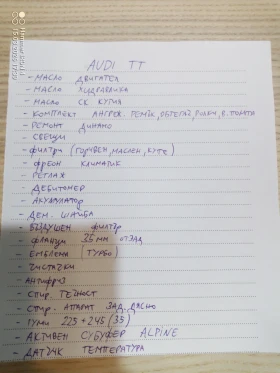 AUDI TT
- МАСЛО ДВИГАТЕЛ
- МАСЛО ХИДРАВЛИКА
- МАСЛО СК. КУТИЯ
- КОМПЛЕКТ АНГРЕН. РЕМЪК, ОБТЕГАЧ, РОЛКИ, В. ПОМПА
- РЕМОНТ ДИНАМО
- СВЕЩИ
- ФИЛТРИ (ГОРИВЕН, МАСЛЕН, КУПЕ)
- ФРЕОН КЛИМАТИК
- РЕГЛАЖ
- ДЕБИТОМЕР
- АКУМУЛАТОР
- ДЕМ. ШАЙБА
- ВЪЗДУШЕН ФИЛТЪР
- ФЛАНЦИ 35мм ОТЗАД
- ЕМБЛЕМА (ТУРБО)
- ЧИСТАЧКИ
- АНТИФРИЗ
- СПИР. ТЕЧНОСТ
- СПИР. АПАРАТ ЗАД. ДЯСНО
- ГУМИ 225 + 245 (35)
- АКТИВЕН СУБУФЕР ALPINE
- ДАТЧИК ТЕМПЕРАТУРА